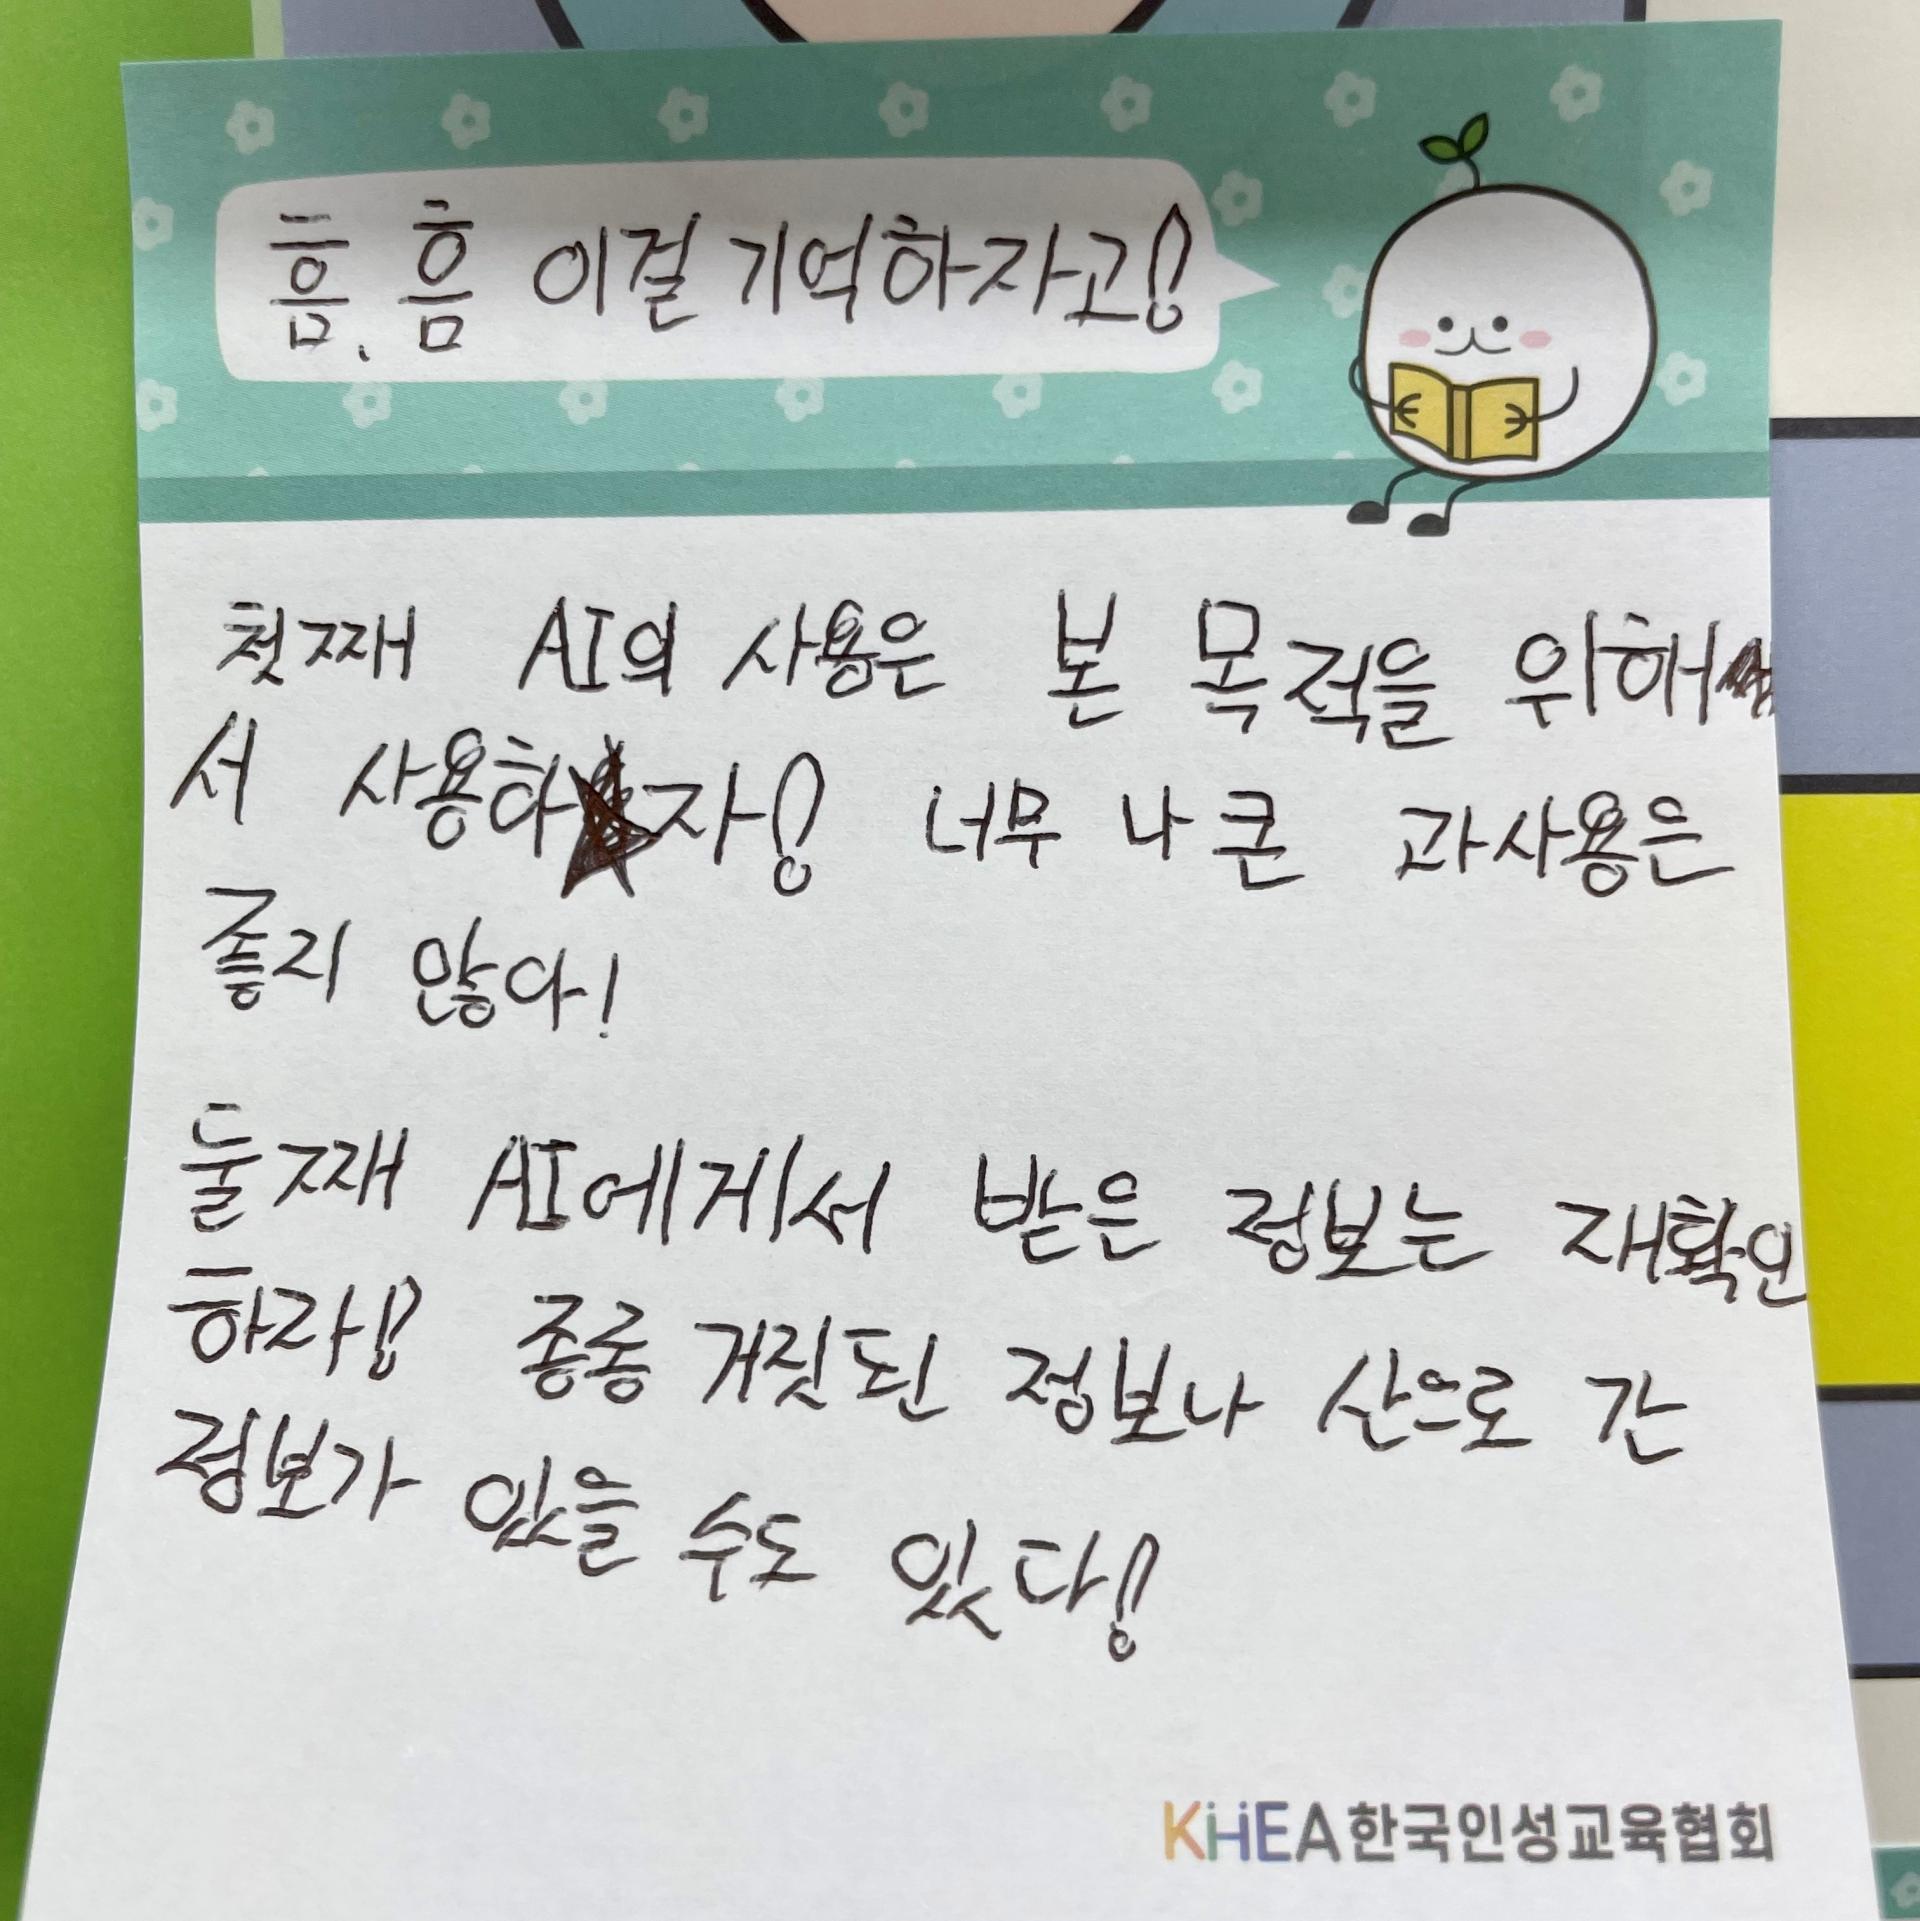 흠, 흠 이걸 기억하자고!
첫째 AI의 사용은 본 목적을 위해
서 사용하자! 너무나 큰 과사용은
좋지 않아!
둘째 AI에게서 받은 정보는 재확인
하라! 종종 거짓된 정보나 산으로 간
정보가 있을 수도 있다!
KHEA한국인성교육협회